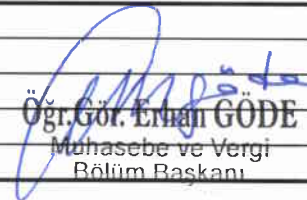 Öğr.Gör. Erhan GÖDE
Muhasebe ve Vergi
Bölüm Başkanı